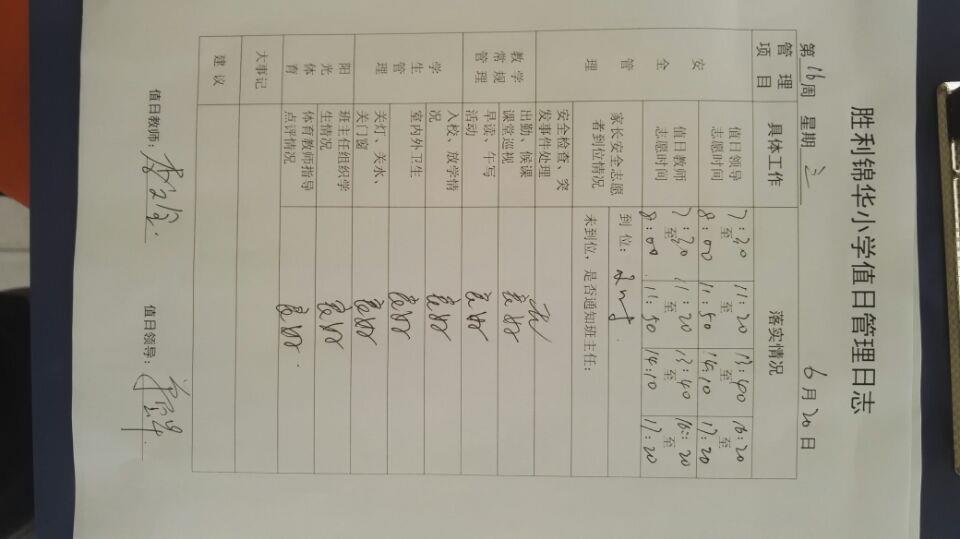 胜利锦华小学值日管理日志
第16周 星期三 6月20日
管理项目 具体工作 落实情况
安全管理
值日领导志愿时间 7:30至8:00 11:20至11:50 13:40至14:10 16:20至17:20
值日教师志愿时间 7:30至8:00 11:20至11:50 13:40至14:10 16:20至17:20
家长安全志愿者到位情况 到位:
未到位,是否通知班主任:
安全检查、突发事件处理 无
教学常规管理
出勤、候课课堂巡视 良好
早读、午写活动 良好
学生管理
入校、放学情况 良好
室内外卫生 良好
关灯、关水、关门窗 良好
阳光体育
班主任组织学生情况 良好
体育教师指导点评情况 良好
大事记
建议
值日教师:
值日领导: